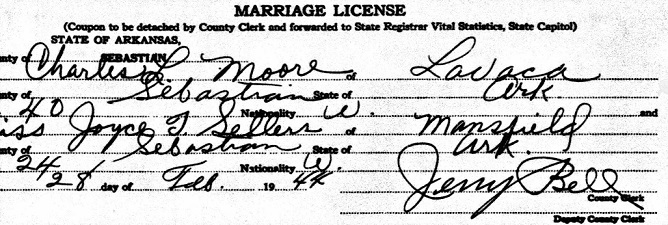 MARRIAGE LICENSE
(Coupon to be detached by County Clerk and forwarded to State Registrar Vital Statistics, State Capitol)
STATE OF ARKANSAS,
SEBASTIAN
nty of Charles L Moore of Lavaca
nty of Sebastian State of Ark
40 Nationality W. and
iss Joyce T. Sellers of Mansfield
nty of Sebastian State of Ark.
24 Nationality W.
28 day of Feb. 19 44 Jerry Bell
County Clerk
Deputy County Clerk